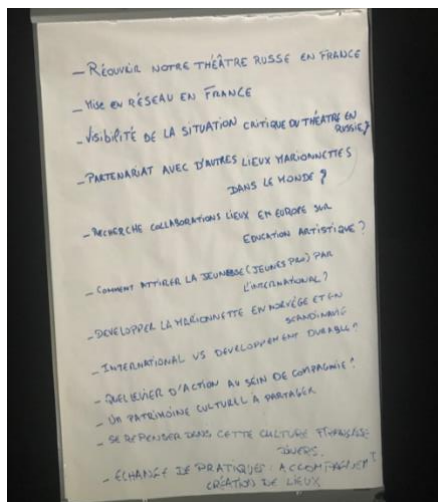 - RÉOUVRIR NOTRE THÉÂTRE RUSSE EN FRANCE
- MISE EN RÉSEAU EN FRANCE
- VISIBILITÉ DE LA SITUATION CRITIQUE DU THÉATRE EN
RUSSIE ?
- PARTENARIAT AVEC D'AUTRES LIEUX MARIONNETTES
DANS LE MONDE ?
- RECHERCHE COLLABORATIONS LIEUX EN EUROPE SUR
EDUCATION ARTISTIQUE ?
- COMMENT ATTIRER LA JEUNESSE (JEUNES PRO) PAR
L'INTERNATIONAL ?
- DEVELOPPER LA MARIONNETTE EN NORVÉGE ET EN
SCANDINAVIE
- INTERNATIONAL VS DEVELOPPEMENT DURABLE ?
- QUEL LEVIER D'ACTION AU SEIN DE COMPAGNIE ?
- UN PATRIMOINE CULTUREL A PARTAGER
- SE REPENSER DANS CETTE CULTURE FRANÇAISE
DIVERS.
- ECHANGE DE PRATIQUES : ACCOMPAGNEMT
CRÉATION DE LIEUX